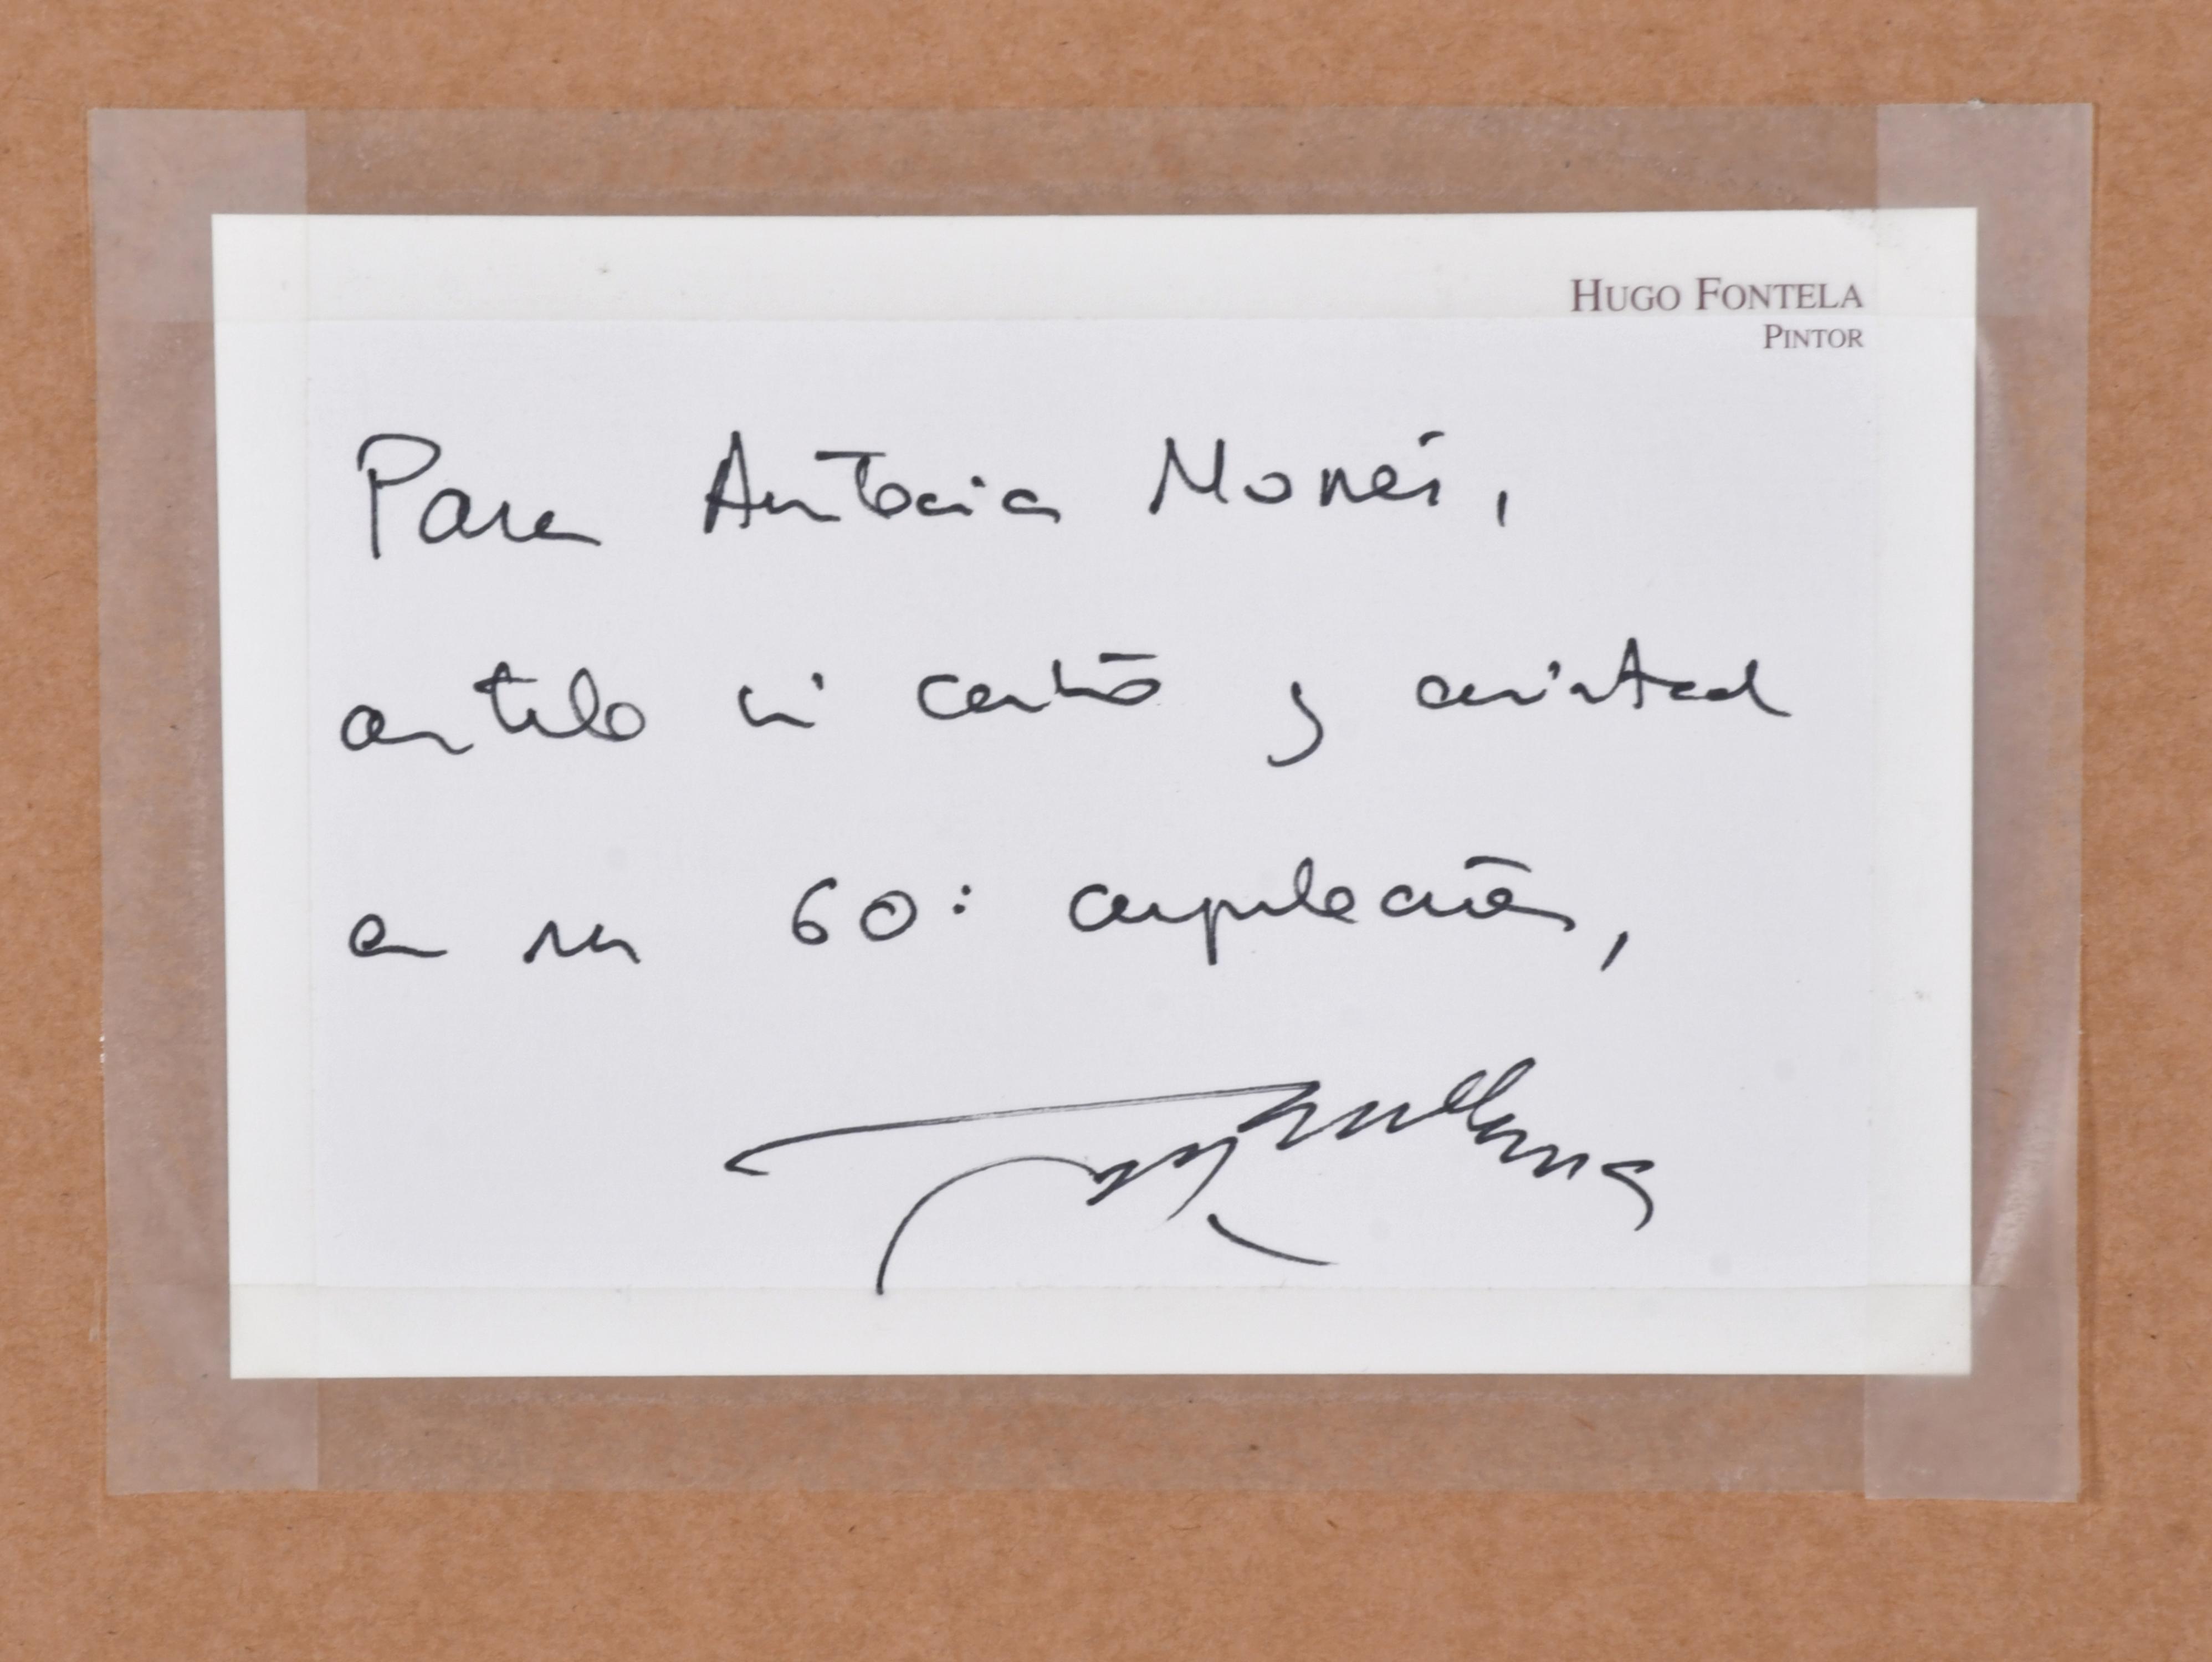 HUGO FONTELA
PINTOR
Para Antonia Monés,
con todo mi cariño y amistad
en su 60º cumpleaños,